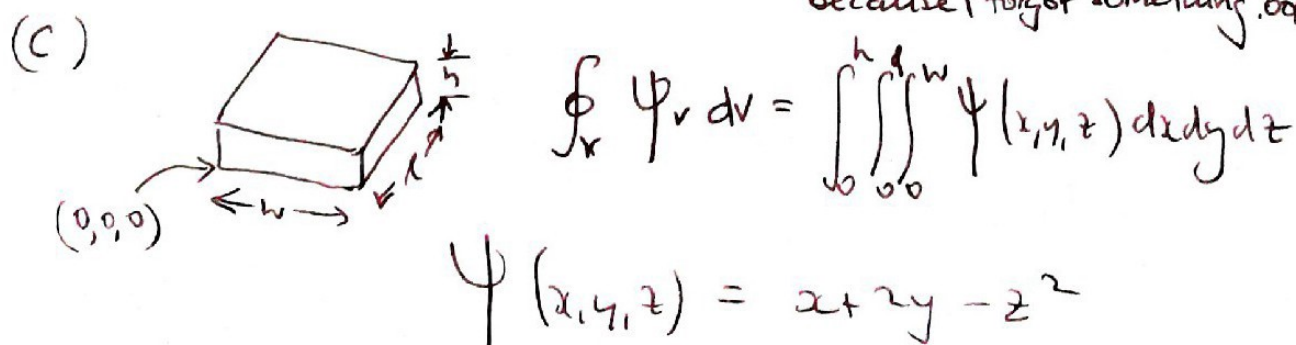 because I forgot something.
(C)
h
l
w
(0,0,0)
∮_V ψ_v dv = ∫_0^h ∫_0^l ∫_0^w ψ(x,y,z) dx dy dz
ψ(x,y,z) = x + 2y - z²